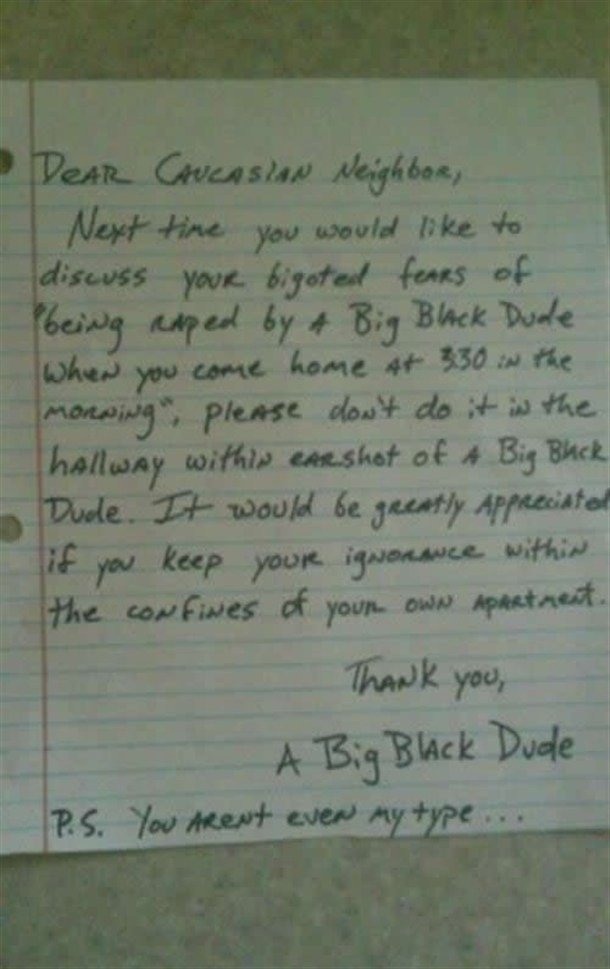 Dear Caucasian Neighbor,
Next time you would like to
discuss your bigoted fears of
"being raped by a Big Black Dude
when you come home at 3:30 in the
morning", please don't do it in the
hallway within earshot of a Big Black
Dude. It would be greatly appreciated
if you keep your ignorance within
the confines of your own apartment.
Thank you,
A Big Black Dude
P.S. You arent even my type...